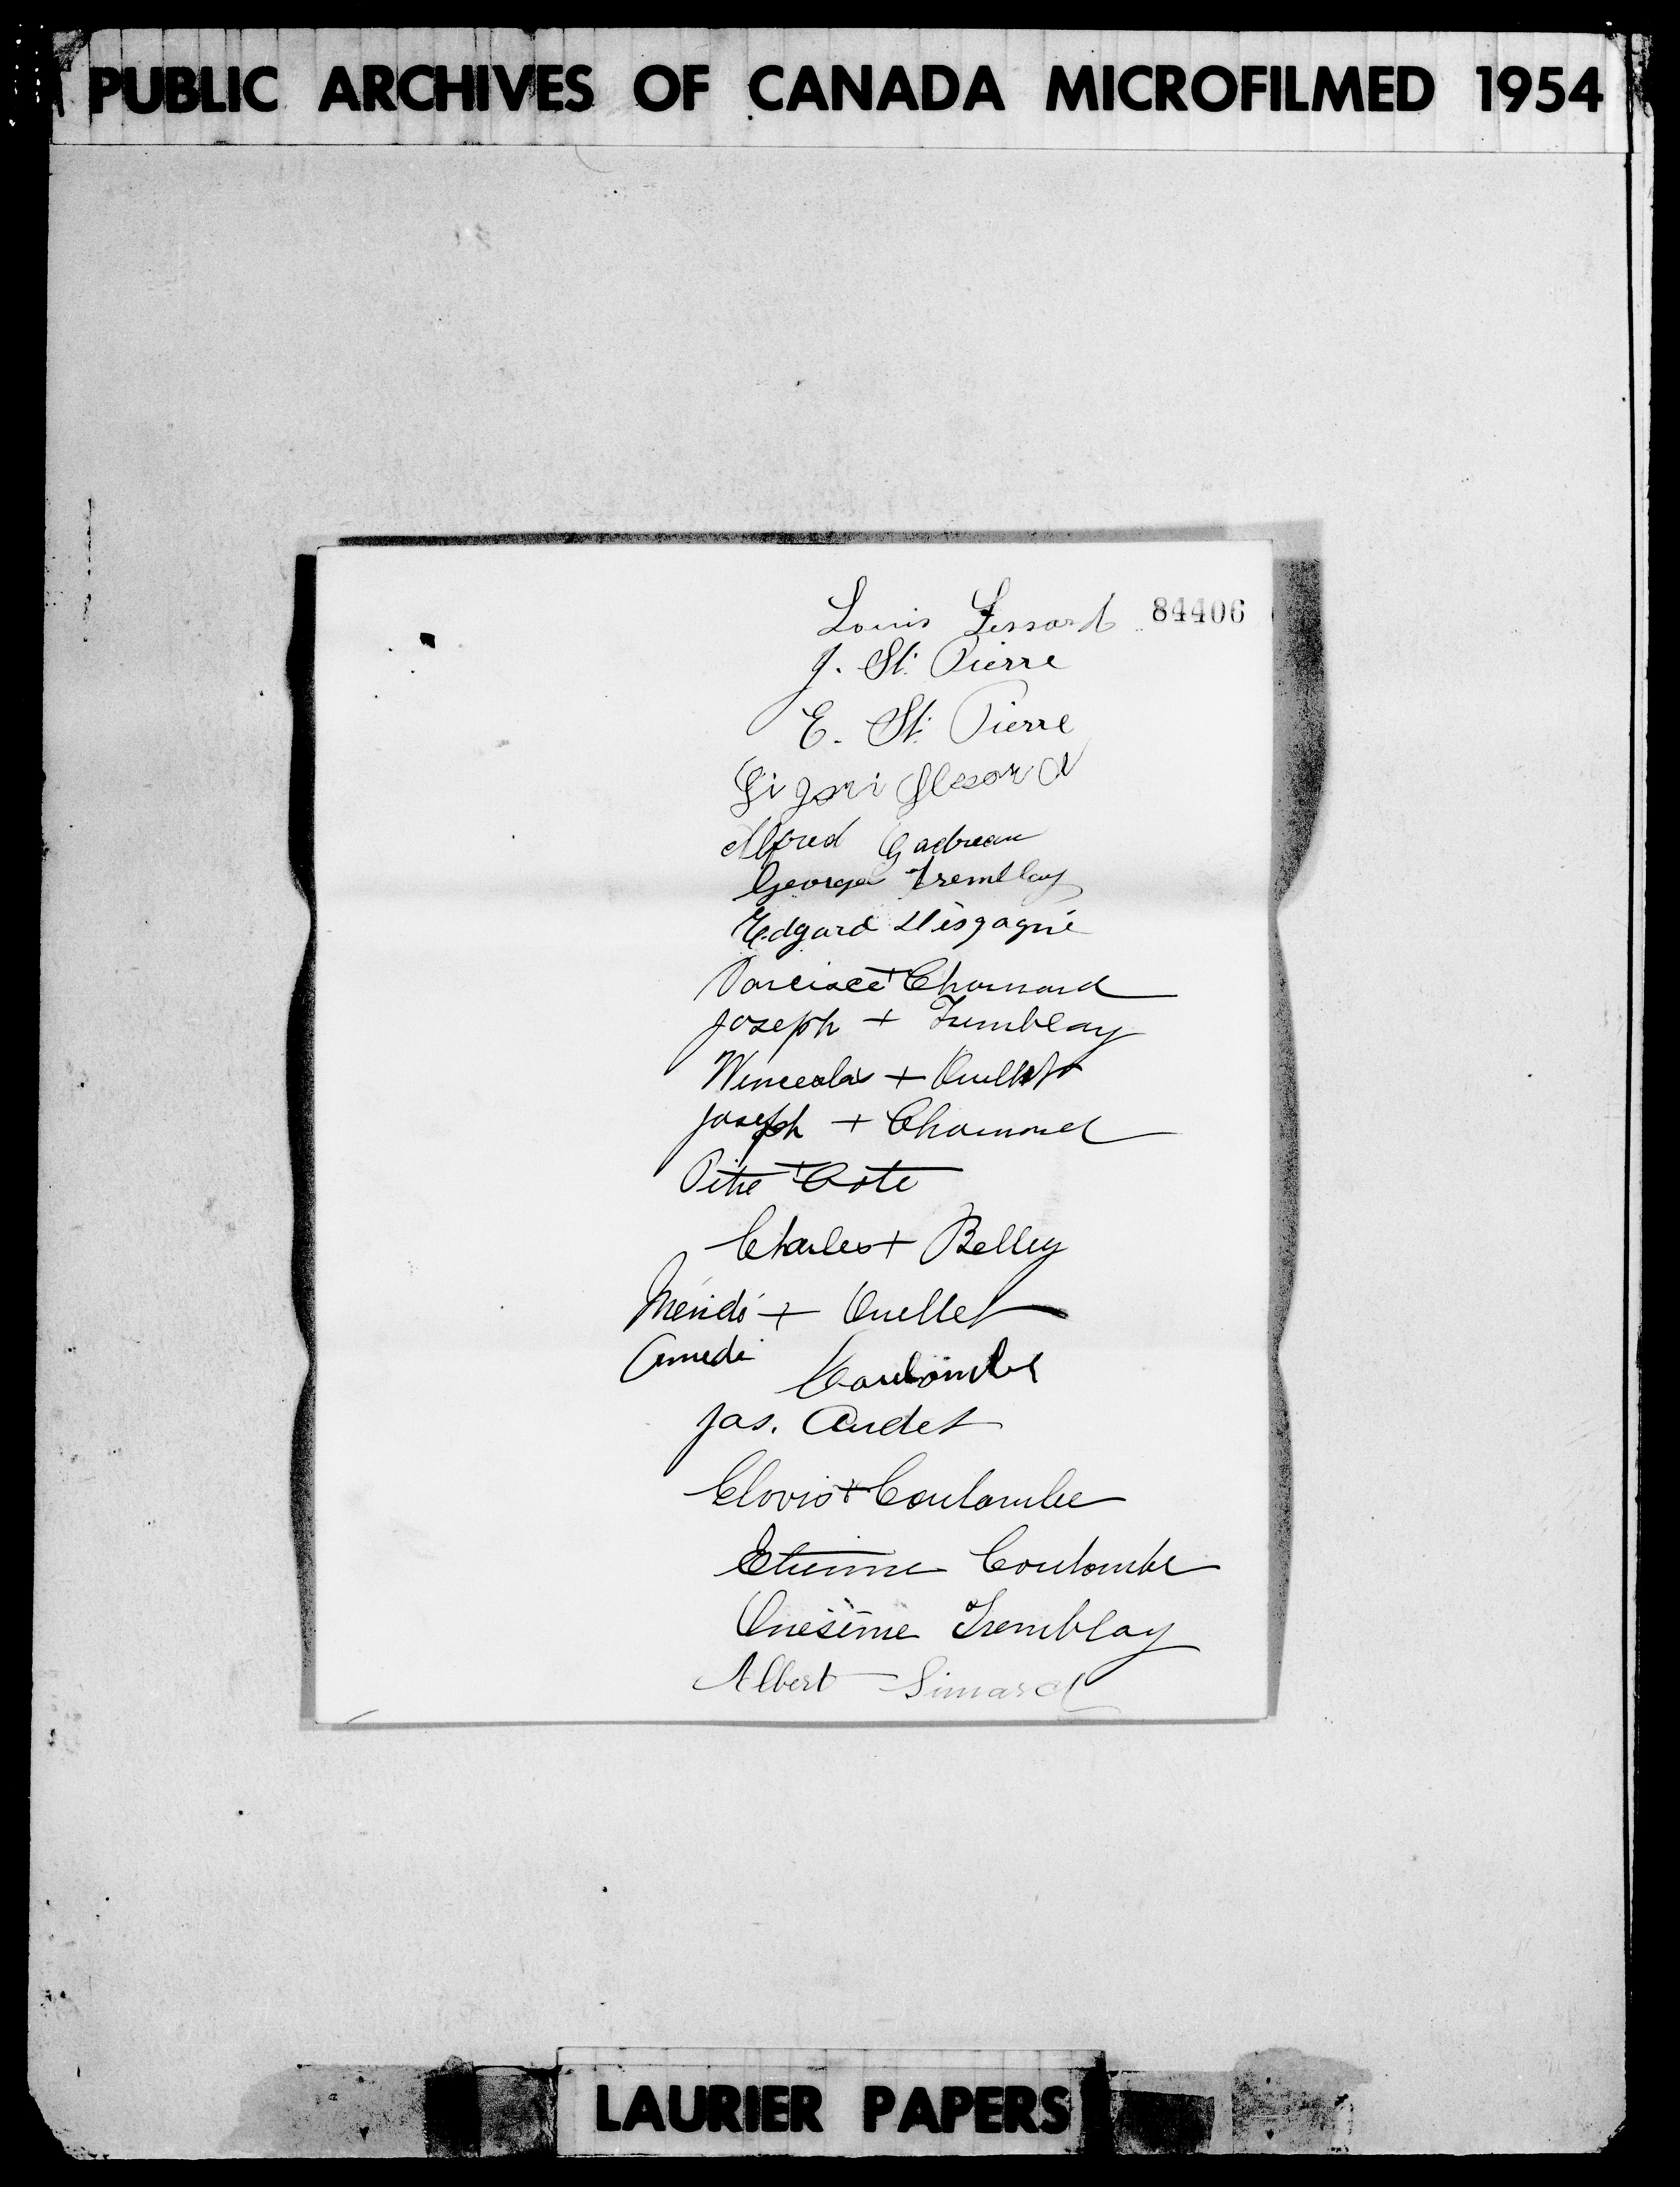 PUBLIC ARCHIVES OF CANADA MICROFILMED 1954
84406
Louis Lessard
J. St. Pierre
E. St. Pierre
Ligori Lessard
Alfred Gadreau
George Tremblay
Edgard Désgagné
Narcisse + Chamard
Joseph + Tremblay
Winceslas + Ouellet
Joseph + Chamard
Pitre + Cote
Charles + Belley
Méridé + Ouellet
Amedé
Coulombe
Jas. Audet
Clovis + Coulombe
Etienne Coulombe
Onésime Tremblay
Albert Simard
LAURIER PAPERS